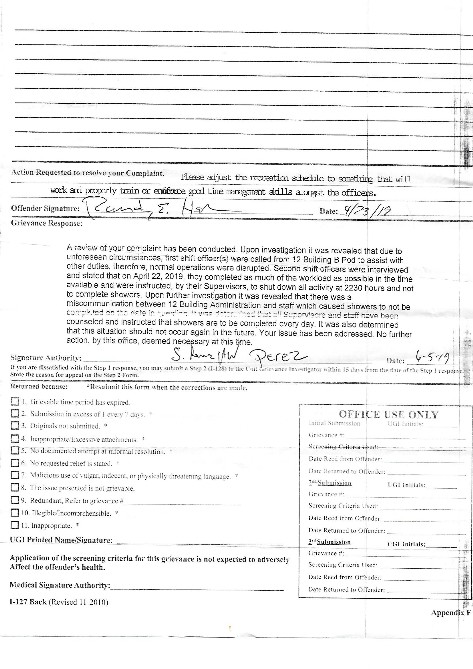 Action Requested to resolve your Complaint. Please adjust the recreation schedule to something that will
work and properly train or enforce good time management skills amongst the officers.
Offender Signature: Date: 4/23/19
Grievance Response:
A review of your complaint has been conducted. Upon investigation it was revealed that due to
unforeseen circumstances, first shift officer(s) were called from 12 Building B Pod to assist with
other duties, therefore, normal operations were disrupted. Second shift officers were interviewed
and stated that on April 22, 2019, they completed as much of the workload as possible in the time
available and were instructed, by their Supervisors, to shut down all activity at 2230 hours and not
to complete showers. Upon further investigation it was revealed that there was a
miscommunication between 12 Building Administration and staff which caused showers to not be
completed on the date in question. It was determined that all Supervisors and staff have been
counseled and instructed that showers are to be completed every day. It was also determined
that this situation should not occur again in the future. Your issue has been addressed. No further
action, by this office, deemed necessary at this time.
Signature Authority: Perez Date: 6-5-19
If you are dissatisfied with the Step 1 response, you may submit a Step 2 (I-128) to the Unit Grievance Investigator within 15 days from the date of the Step 1 response.
State the reason for appeal on the Step 2 Form.
Returned because: *Resubmit this form when the corrections are made.
1. Grievable time period has expired.
2. Submission in excess of 1 every 7 days. *
3. Originals not submitted. *
4. Inappropriate/Excessive attachments. *
5. No documented attempt at informal resolution. *
6. No requested relief is stated. *
7. Malicious use of vulgar, indecent, or physically threatening language. *
8. The issue presented is not grievable.
9. Redundant, Refer to grievance #
10. Illegible/Incomprehensible. *
11. Inappropriate. *
UGI Printed Name/Signature:
Application of the screening criteria for this grievance is not expected to adversely
Affect the offender's health.
Medical Signature Authority:
I-127 Back (Revised 11-2010)
OFFICE USE ONLY
Initial Submission UGI Initials:
Grievance #:
Screening Criteria Used:
Date Recd from Offender:
Date Returned to Offender:
2nd Submission UGI Initials:
Grievance #:
Screening Criteria Used:
Date Recd from Offender:
Date Returned to Offender:
3rd Submission UGI Initials:
Grievance #:
Screening Criteria Used:
Date Recd from Offender:
Date Returned to Offender:
Appendix F